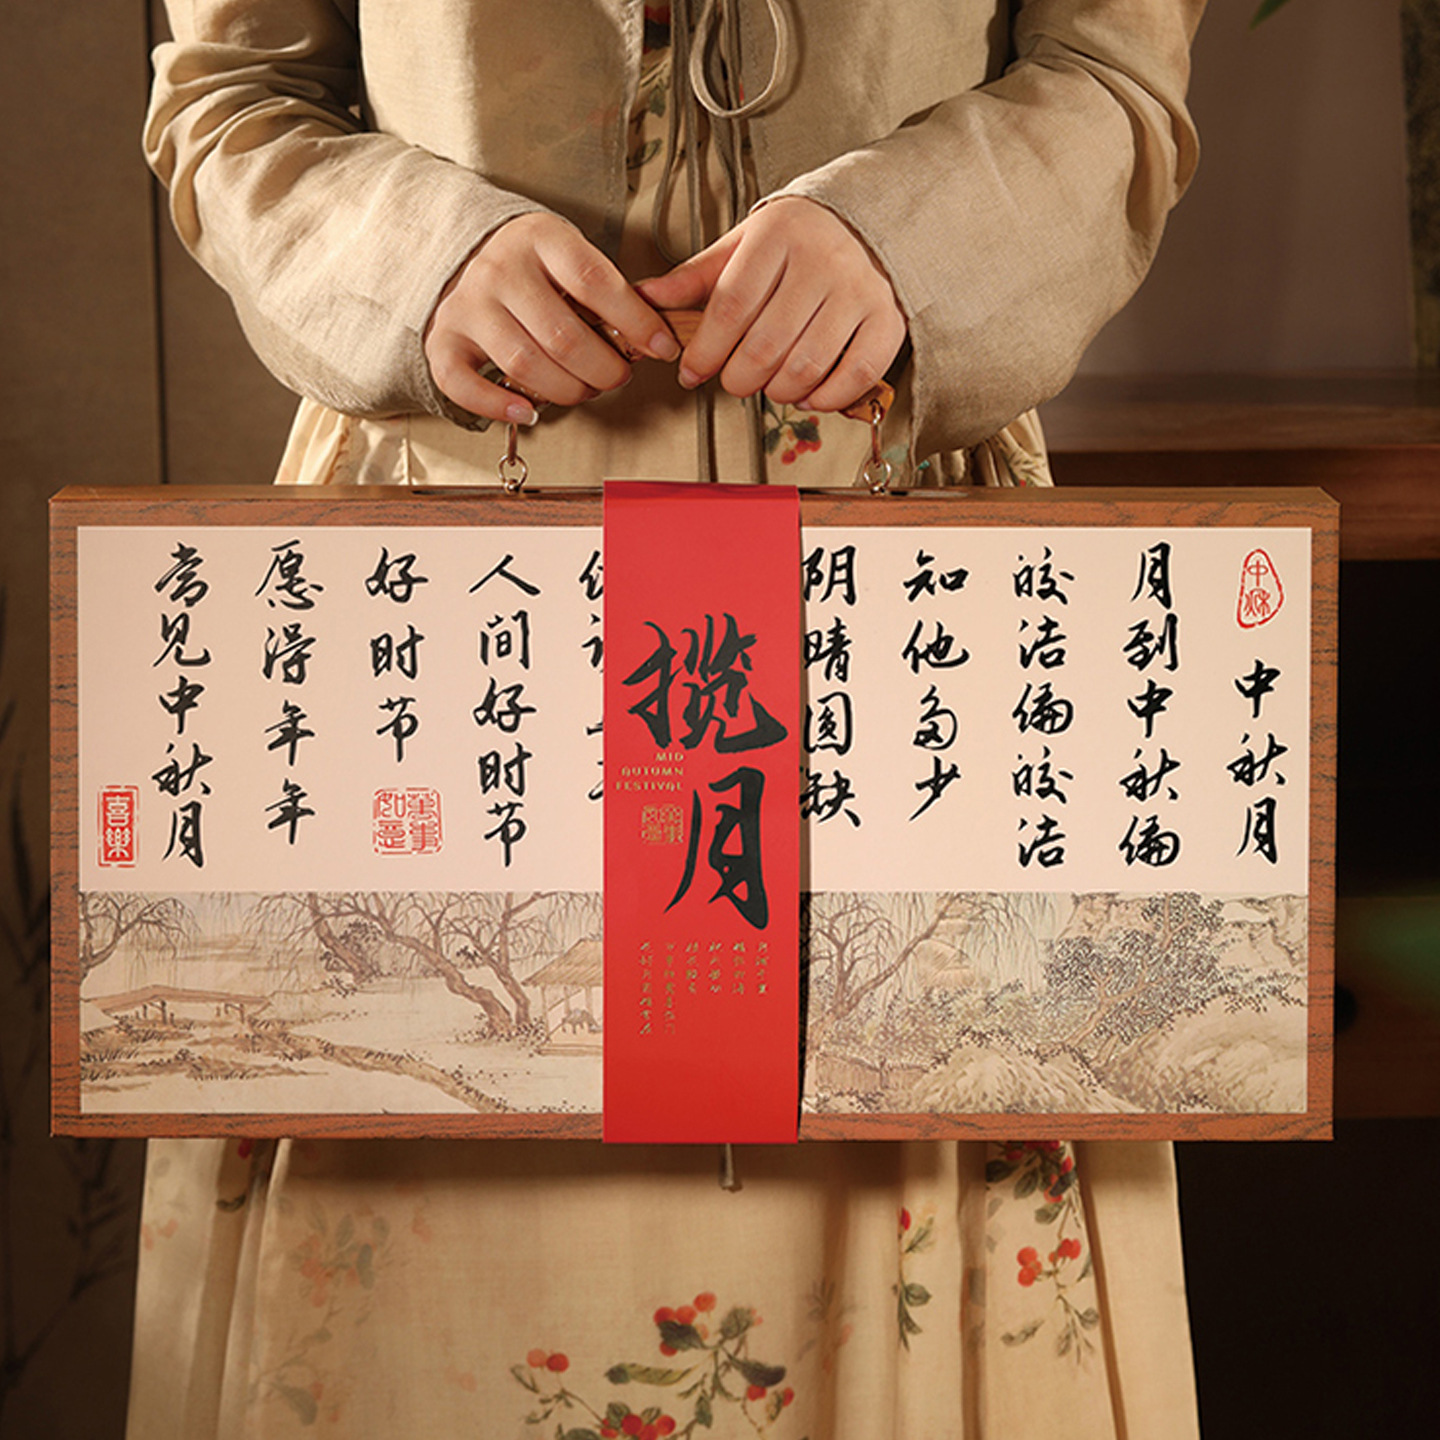 中秋
中秋月
月到中秋偏
皎洁偏皎洁
知他多少
阴晴圆缺
揽月
MID
AUTUMN
FESTIVAL
人间好时节
好时节
萬事如意
愿得年年
常见中秋月
喜樂